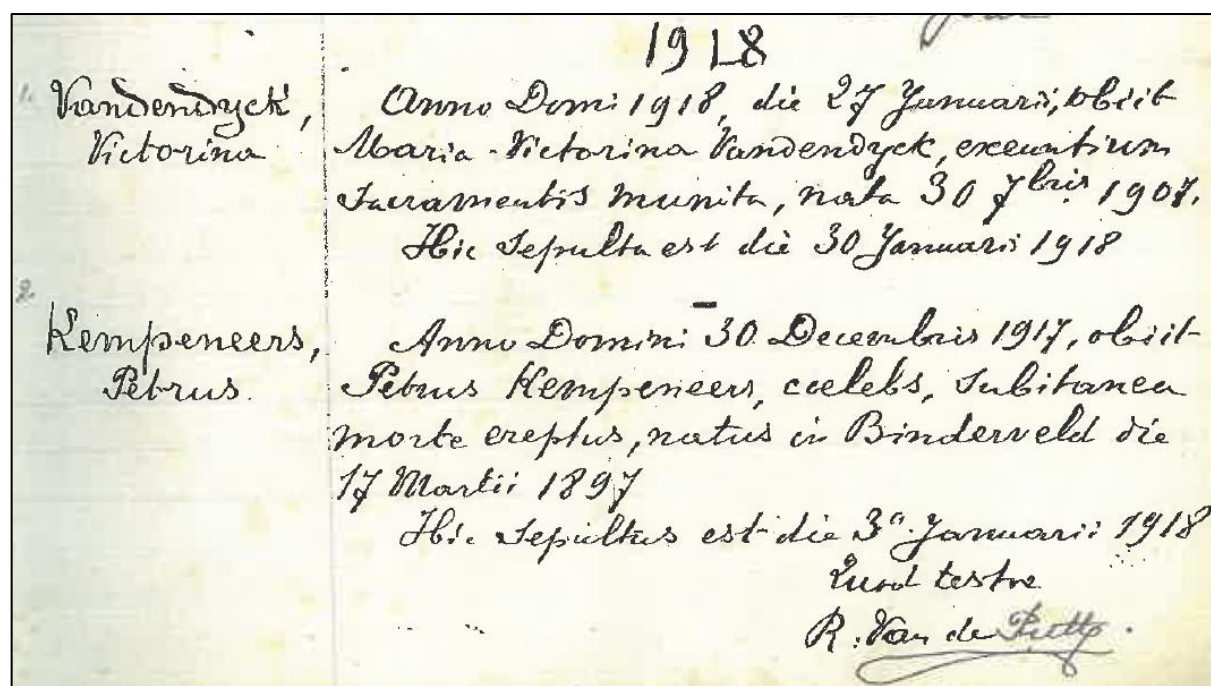 1918
1. Vandendyck, Anno Domi 1918, die 27 Januarii, obiit
Victorina Maria-Victorina Vandendyck, exeuntium
Sacramentis munita, nata 30 7bris 1907.
Hic Sepulta est die 30 Januarii 1918
2.
Kempeneers, Anno Domini 30 Decembris 1917, obiit
Petrus. Petrus Kempeneers, coelebs, Subitanea
morte ereptus, natus in Binderveld die
17 Martii 1897
Hic Sepultus est die 3a Januarii 1918
Quod testor
R. Van de